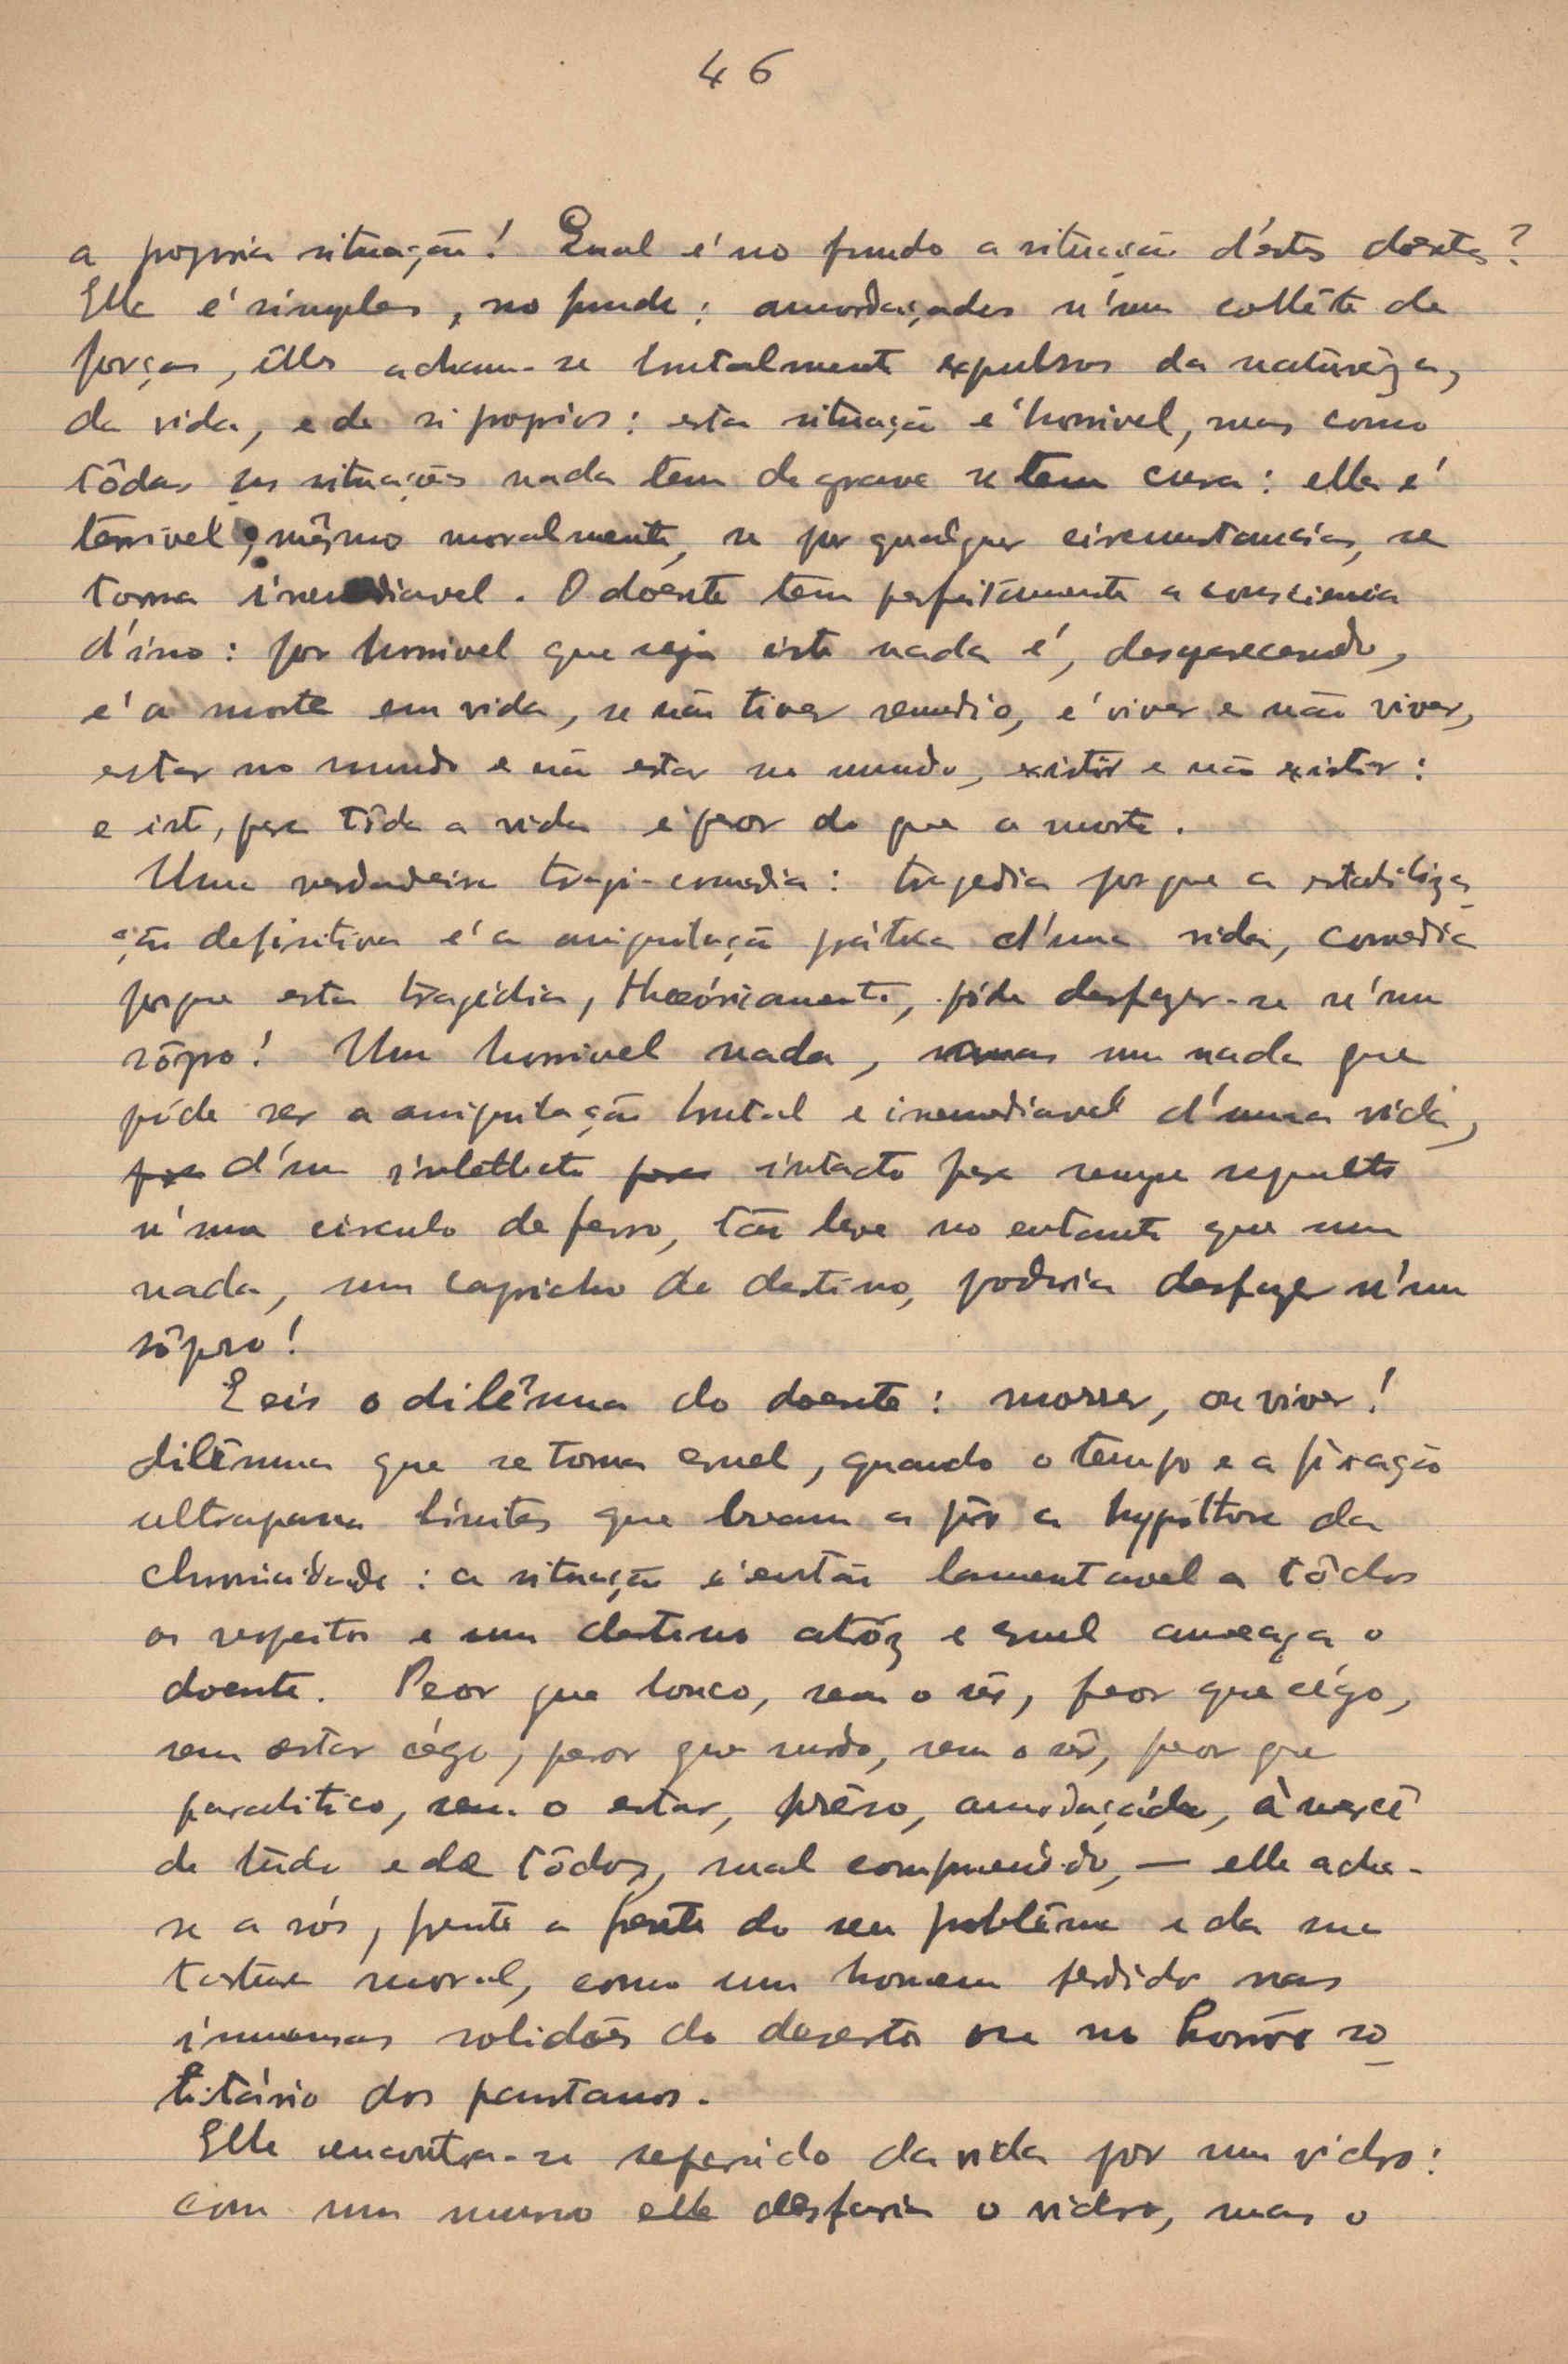 46
a propria situação! Qual é no fundo a situação d'estes doentes?
Elle é simples, no fundo: amordaçados n'um collête de
forças, elles acham-se brutalmente expulsos da naturêza,
da vida, e de si proprios: esta situação é horrivel, mas como
tôdas as situações nada tem de grave se tem cura: ella é
terrivel, mêsmo moralmente, se por qualquer circumstancia, se
torna irremediavel. O doente tem perfeitamente a consciencia
d'isso: por horrivel que seja isto nada é, desaparecendo,
é a morte em vida, se não tiver remedio, é viver e não viver,
estar no mundo e não estar no mundo, existir e não existir:
e isto, para tôda a vida é peor do que a morte.
Uma verdadeira tragi-comedia: tragedia porque a estabiliza
ção definitiva é a amputação prática d'uma vida, comedia
porque esta tragédia, theóricamente, póde desfazer-se n'um
sôpro! Um horrivel nada, mas um nada que
póde ser a amputação brutal e irremediavel d'uma vida,
d'um intellecto intacto para sempre sepulto
n'um circulo de ferro, tão leve no entanto que um
nada, um capricho do destino, podería desfazer n'um
sôpro!
E eis o dilêmma do doente: morrer, ou viver!
dilêmma que se torna cruel, quando o tempo e a fixação
ultrapassa limites que levam a pôr a hypóthese da
chronicidade: a situação é então lamentavel a tôdos
os respeitos e um destino atróz e cruel ameaça o
doente. Peor que louco, sem o sêr, peor que cégo,
sem estar cégo, peor que surdo, sem o sêr, peor que
paralitico, sem o estar, prêso, amordaçádo, à mercê
de tudo e de tôdos, mal compreendido, — elle acha-
se a sós, frente a frente do seu problêma e da sua
tortura moral, como um homem perdido nas
immensas solidões do deserto ou no horrôr so
litário dos pantanos.
Elle encontra-se separado da vida por um vidro:
com um murro elle desfaria o vidro, mas o